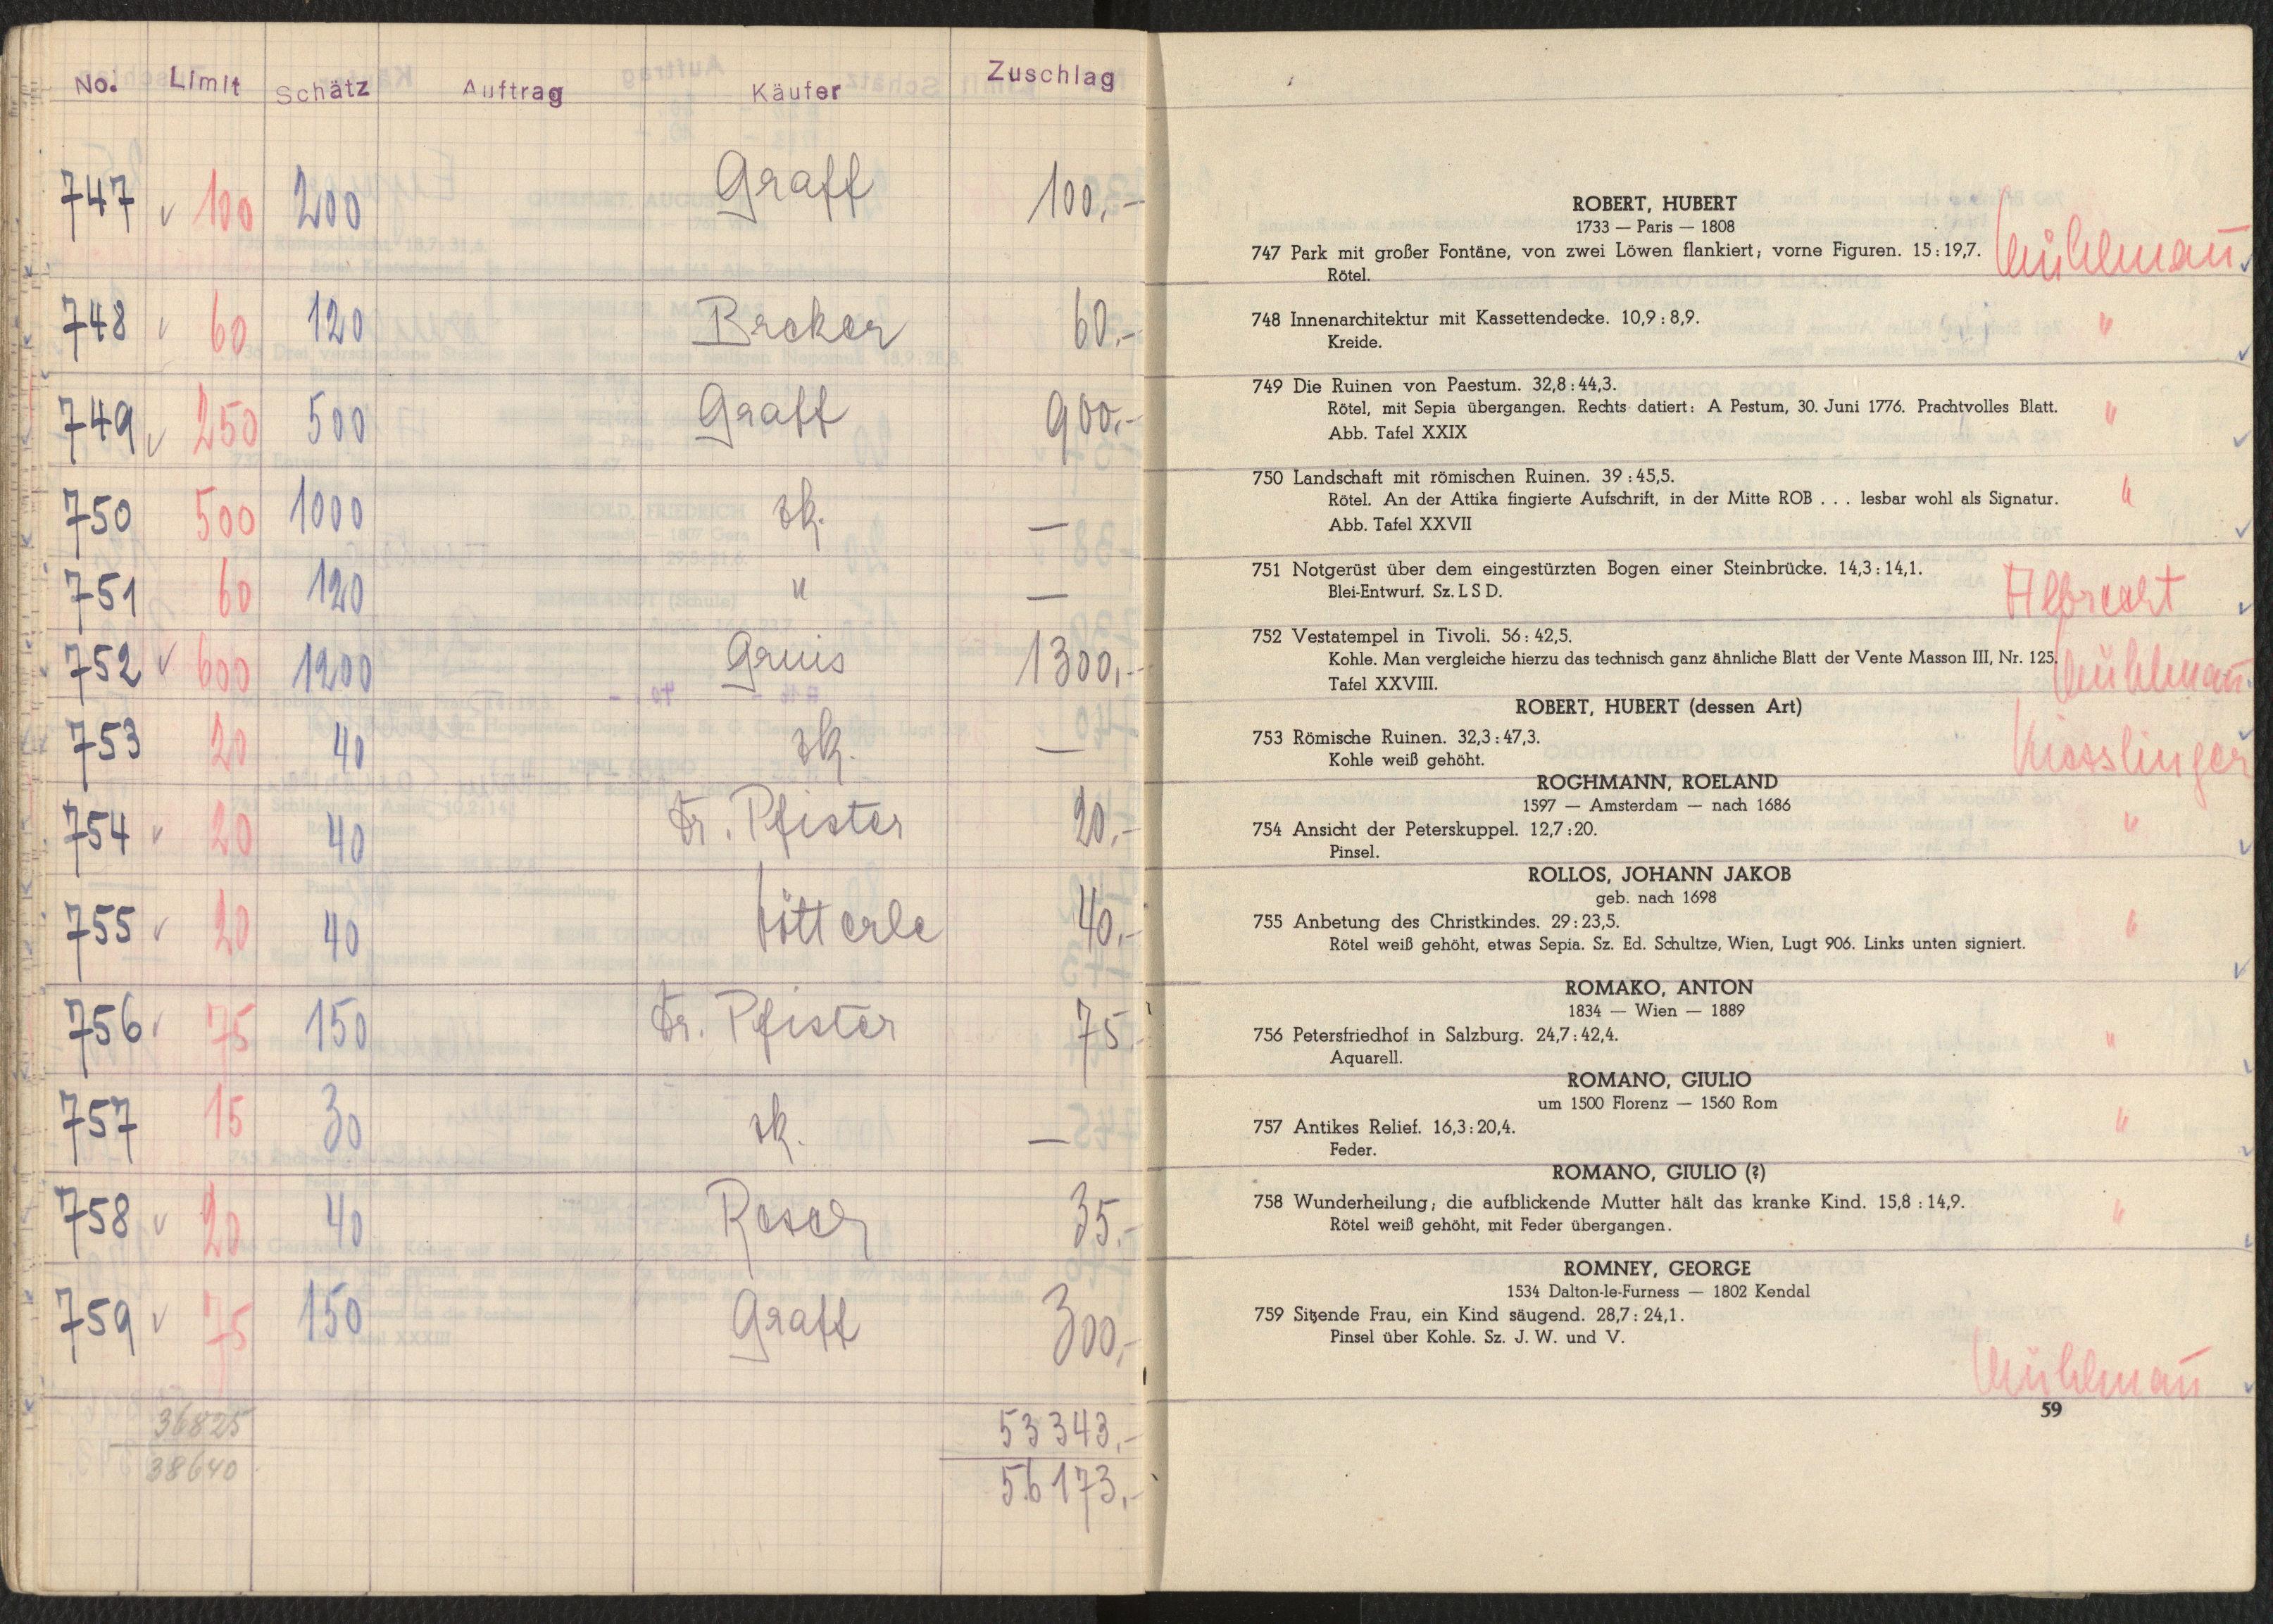 No. Limit Schätz Auftrag Käufer Zuschlag
747 ✓ 100 200 Graff 100,-
748 ✓ 60 120 Breker 60,-
749 ✓ 250 500 Graff 900,-
750 500 1000 zk. —
751 60 120 " —
752 ✓ 600 1200 Gruis 1300,-
753 20 40 zk. —
754 ✓ 20 40 Dr. Pfister 20,-
755 ✓ 20 40 40,-
756 ✓ 75 150 Dr. Pfister 75.-
757 15 30 zk. —
758 ✓ 20 40 Reser 35.-
759 ✓ 75 150 Graff 300,-
36825 53343,-
38640 56173,-
ROBERT, HUBERT
1733 — Paris — 1808
747 Park mit großer Fontäne, von zwei Löwen flankiert; vorne Figuren. 15 : 19,7.
Rötel.
Mühlmann
748 Innenarchitektur mit Kassettendecke. 10,9 : 8,9. "
Kreide.
749 Die Ruinen von Paestum. 32,8 : 44,3.
Rötel, mit Sepia übergangen. Rechts datiert: A Pestum, 30. Juni 1776. Prachtvolles Blatt. "
Abb. Tafel XXIX
750 Landschaft mit römischen Ruinen. 39 : 45,5.
Rötel. An der Attika fingierte Aufschrift, in der Mitte ROB . . . lesbar wohl als Signatur. "
Abb. Tafel XXVII
751 Notgerüst über dem eingestürzten Bogen einer Steinbrücke. 14,3 : 14,1.
Blei-Entwurf. Sz. L S D. Albrecht
752 Vestatempel in Tivoli. 56 : 42,5.
Kohle. Man vergleiche hierzu das technisch ganz ähnliche Blatt der Vente Masson III, Nr. 125.
Tafel XXVIII. Mühlmann
ROBERT, HUBERT (dessen Art)
753 Römische Ruinen. 32,3 : 47,3.
Kohle weiß gehöht. Kiesslinger
ROGHMANN, ROELAND
1597 — Amsterdam — nach 1686
754 Ansicht der Peterskuppel. 12,7 : 20. "
Pinsel.
ROLLOS, JOHANN JAKOB
geb. nach 1698
755 Anbetung des Christkindes. 29 : 23,5. "
Rötel weiß gehöht, etwas Sepia. Sz. Ed. Schultze, Wien, Lugt 906. Links unten signiert.
ROMAKO, ANTON
1834 — Wien — 1889
756 Petersfriedhof in Salzburg. 24,7 : 42,4. "
Aquarell.
ROMANO, GIULIO
um 1500 Florenz — 1560 Rom
757 Antikes Relief. 16,3 : 20,4. "
Feder.
ROMANO, GIULIO (?)
758 Wunderheilung; die aufblickende Mutter hält das kranke Kind. 15,8 : 14,9. "
Rötel weiß gehöht, mit Feder übergangen.
ROMNEY, GEORGE
1534 Dalton-le-Furness — 1802 Kendal
759 Sitzende Frau, ein Kind säugend. 28,7 : 24,1.
Pinsel über Kohle. Sz. J. W. und V.
Mühlmann
59